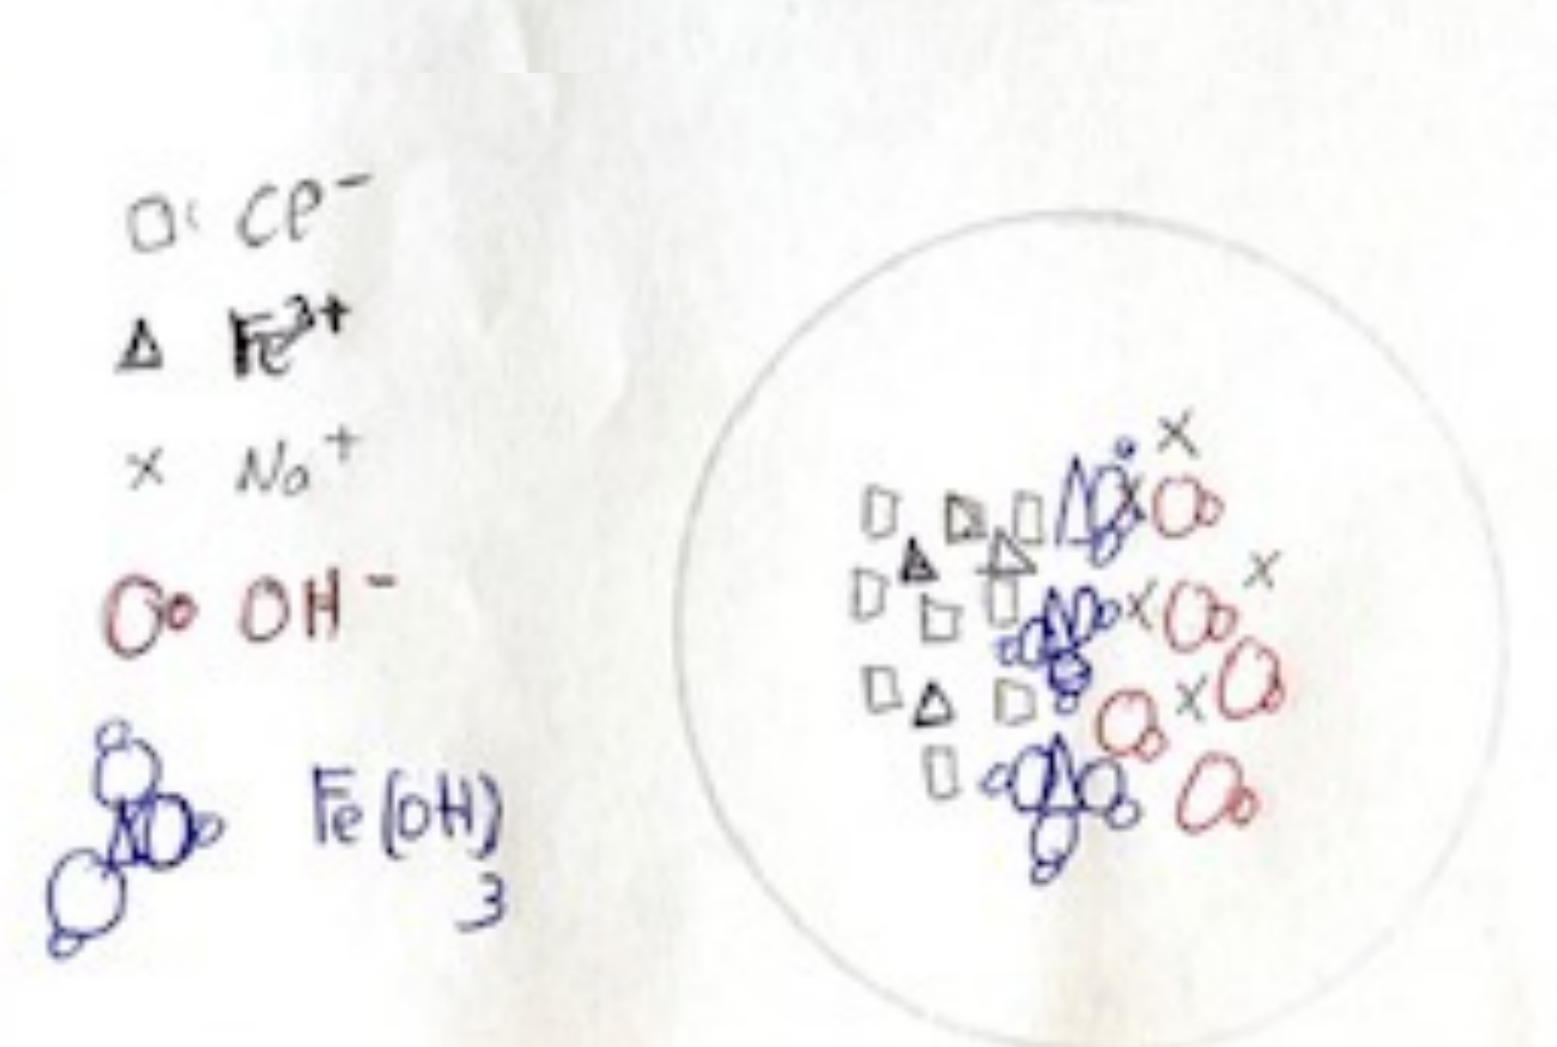 □: Cl⁻
△ Fe³⁺
× Na⁺
OH⁻
Fe(OH)₃